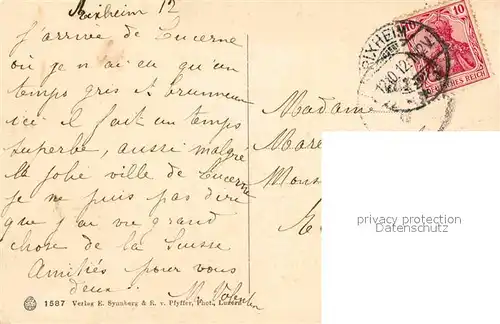 Rixheim 12
J'arrive de Lucerne
où je n'ai eu qu'un
temps gris & brumeux
ici il fait un temps
superbe, aussi malgré
la jolie ville de Lucerne
je ne puis pas dire
que j'ai vu grand
chose de la Suisse
Amitiés pour vous
deux.
1587 Verlag E. Synnberg & R. v. Pfyffer, Phot., Luzern
RIXHEIM
10
DEUTSCHES REICH
Madame
privacy protection
for address data